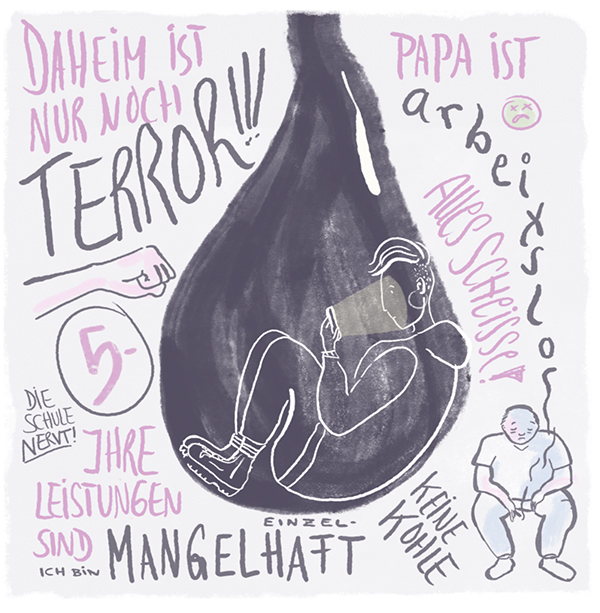 DAHEIM IST
NUR NOCH
TERROR!!!
PAPA IST
arbeitslos
Alles Scheisse!
5-
DIE
SCHULE
NERVT!
IHRE
LEISTUNGEN
SIND
EINZEL-
ICH BIN MANGELHAFT
KEINE
KOHLE